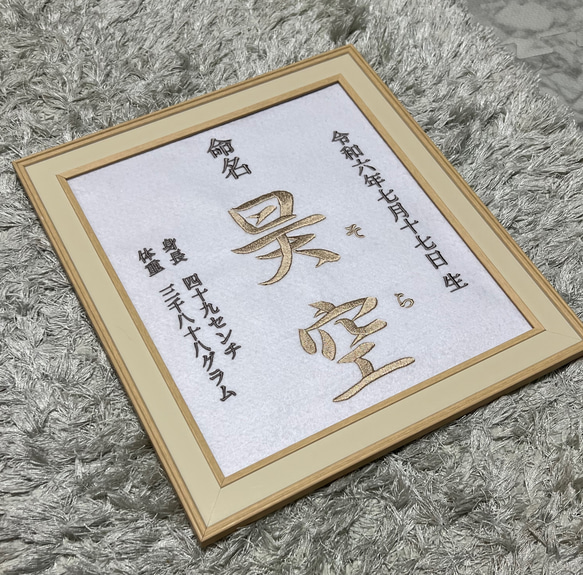 令和六年七月十七日生
命名
昊空
そら
身長 四十九センチ
体重 三千八十八グラム